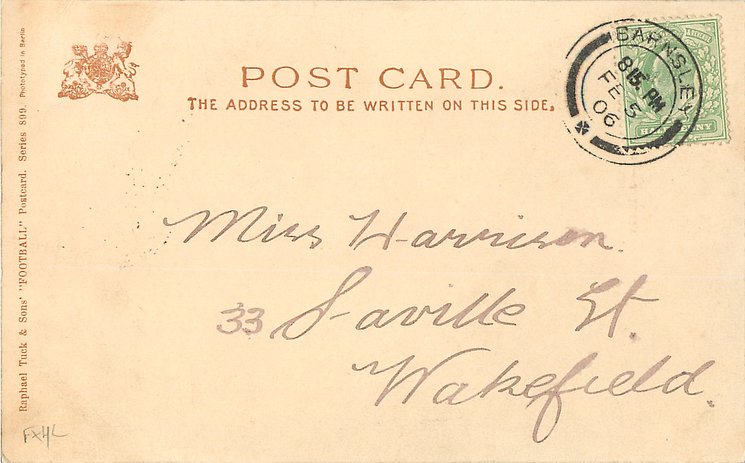 POST CARD.
THE ADDRESS TO BE WRITTEN ON THIS SIDE.
BARNSLEY
8 15 PM
FE 5
06
HALFPENNY
Miss Harrison.
33 Saville St.
Wakefield.
Raphael Tuck & Sons' "FOOTBALL" Postcard. Series 899. Phototyped in Berlin
FXHL